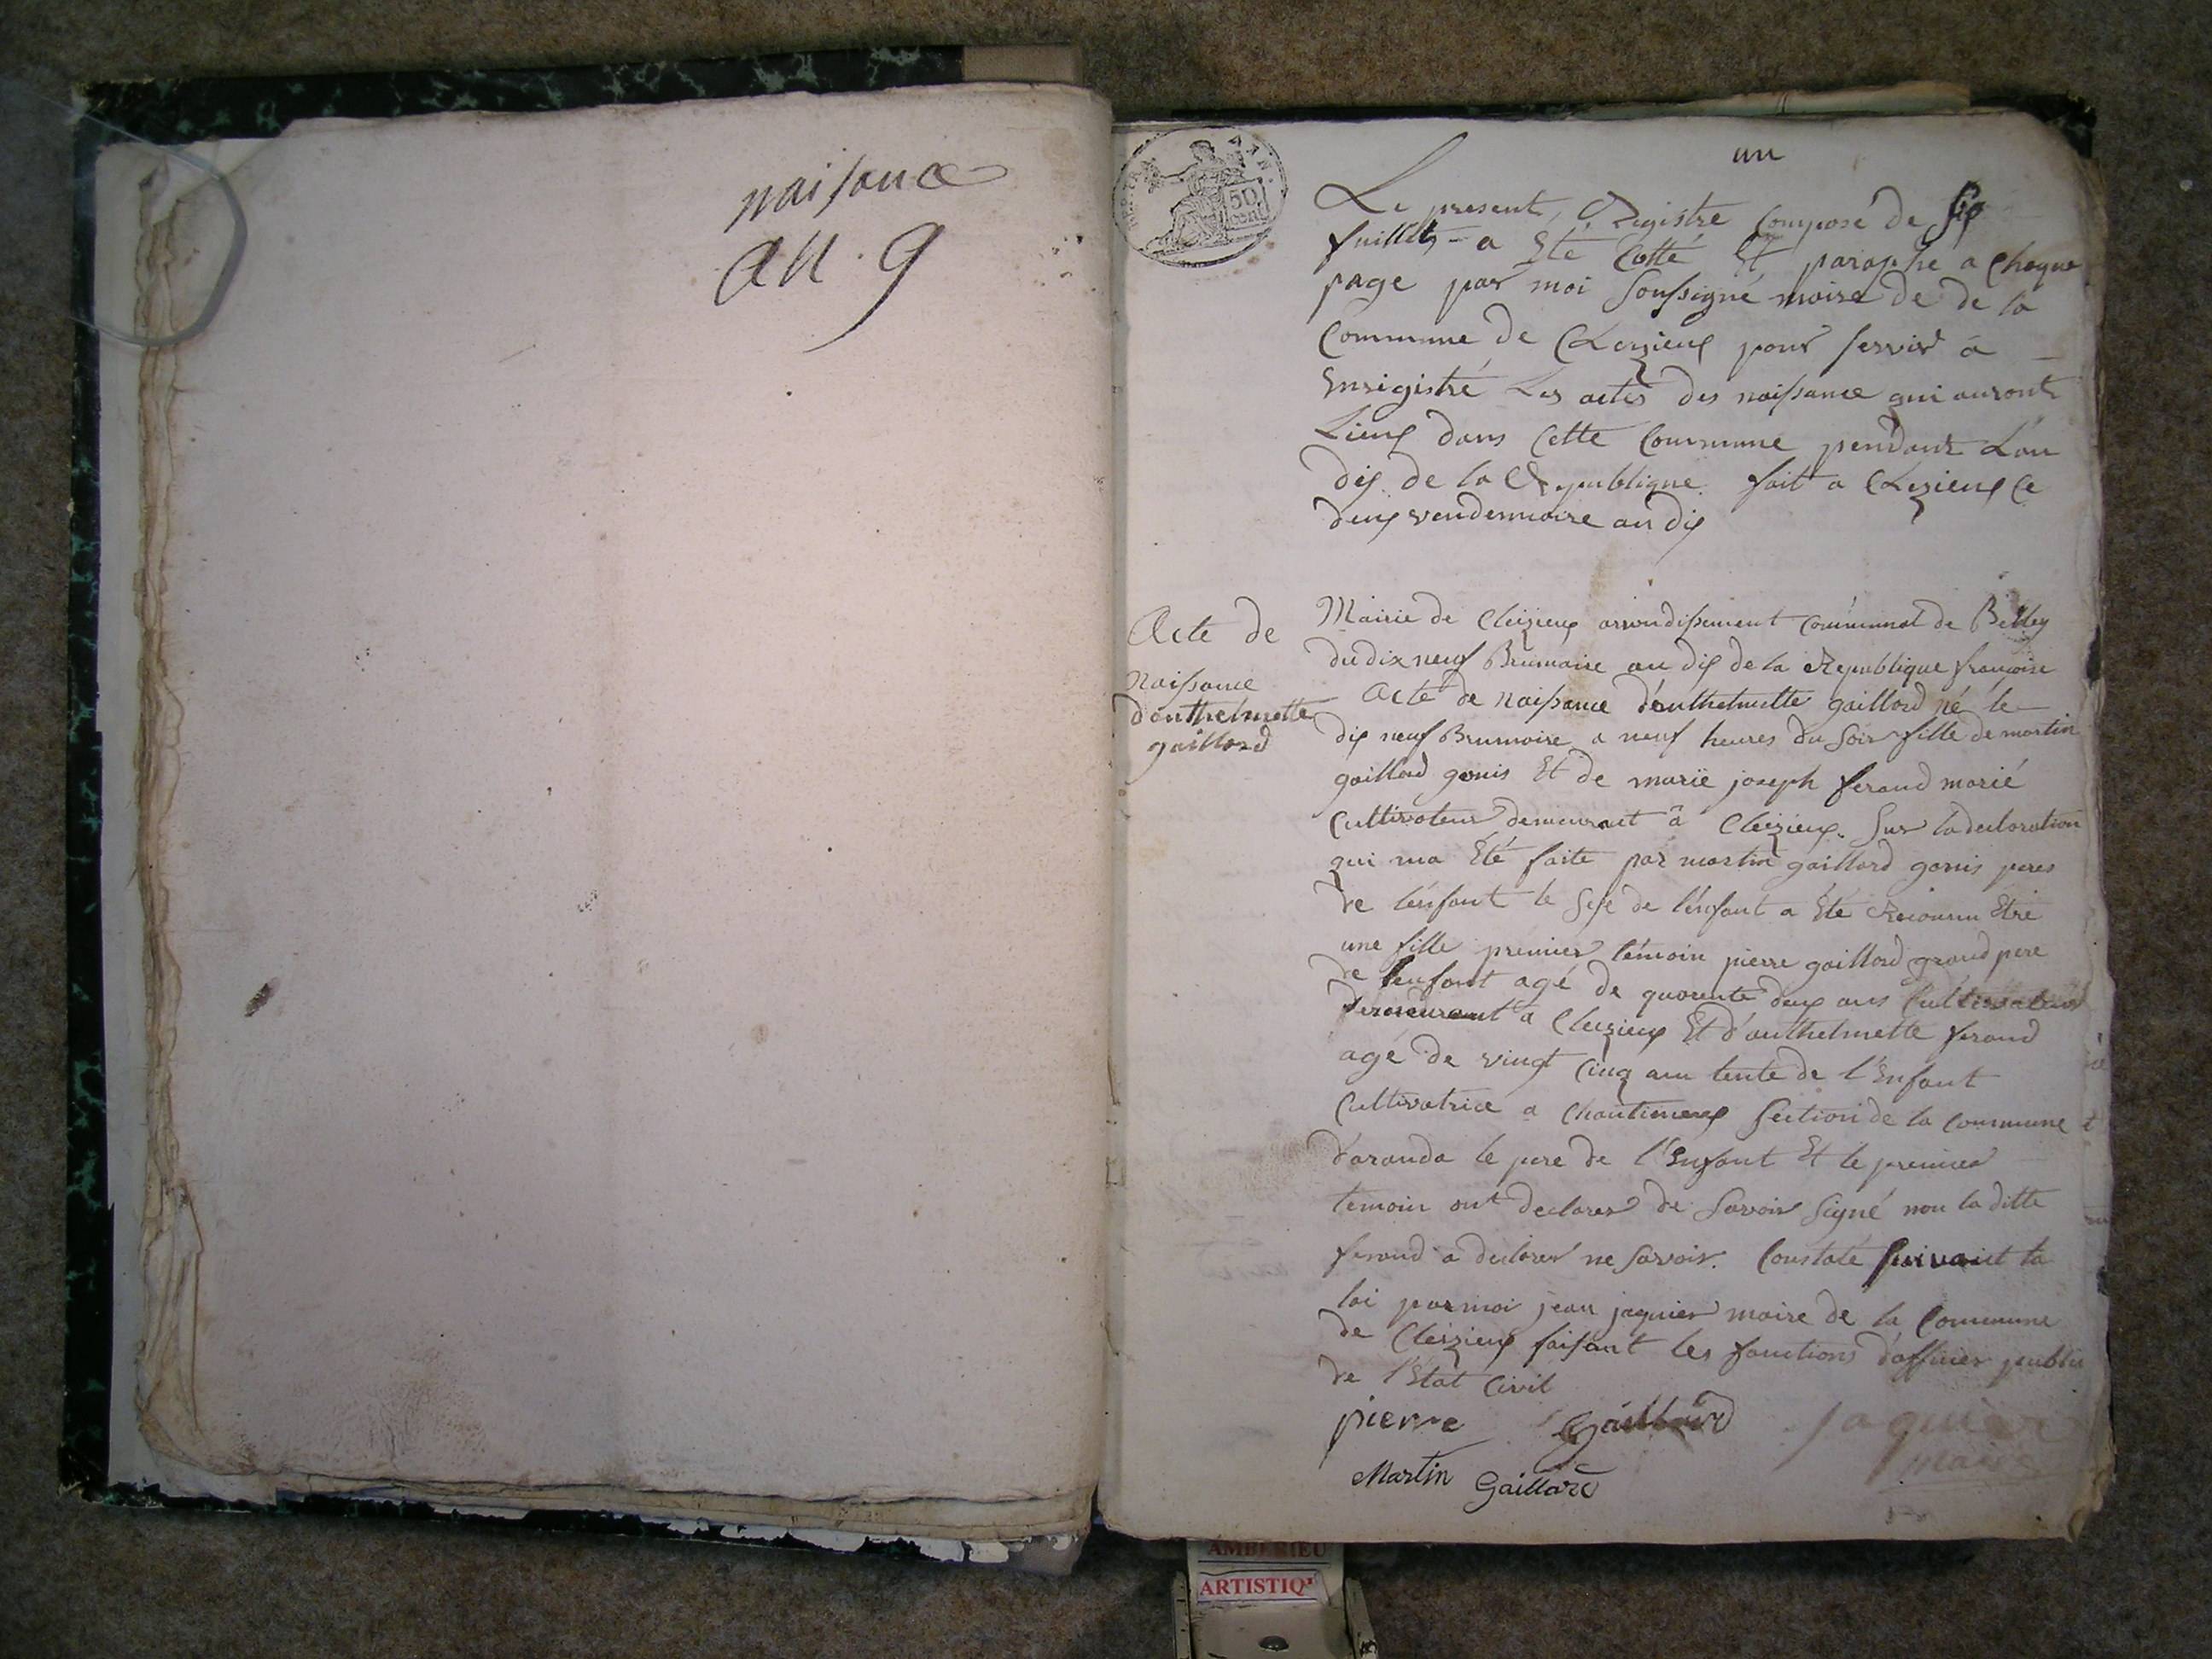 naissance
an . 9
50
cent
un
Le present, Registre Composé de six
fuillets - a Eté Cotté Et paraphé a Chaque
page par moi Soussigné maire de de la
Commune de Cleyzieux pour servir à
Enrigistré Les actes des naissance qui auront
Lieux dans Cette Commune pendant L'an
dix de la Republique. fait a Cleyzieux Ce
deux vendemiaire an dix
Acte de
Naissance
d'anthelmette
gaillard
Mairie de Cleizieux arrondissement Communal de Belley
du dix neuf Brumaire an dix de la Republique francoise
Acte de Naissance d'anthelmette gaillard né le
dix neuf Brumaire a neuf heures du Soir fille de martin
gaillard gonis Et de marie joseph ferand marié
Cultivateur demeurant à Cleizieux. Sur la declaration
qui ma Eté faite par martin gaillard gonis peres
de l'enfant le sexe de l'enfant a Eté Reconnu Etre
une fille premier témoin pierre gaillard grand pere
de lenfant agé de quarente deux ans Cultivateur
demeurant a Cleizieux Et d'anthelmette ferand
agé de vingt Cinq ans tente de l'Enfant
Cultivatrice a Chantiment Section de la Commune
d'aranda le pere de l'Enfant Et le premier
temoin ont declarer de Savoir Signé non la ditte
ferand a declarer ne Savoir. Constaté suivant la
loi par moi jean jaquier maire de la Commune
de Cleizieux faisant les fonctions d'officier public
de l'Etat Civil
pierre Gaillard Jaquier
maire
Martin Gaillard
AMBERIEU
ARTISTIQ